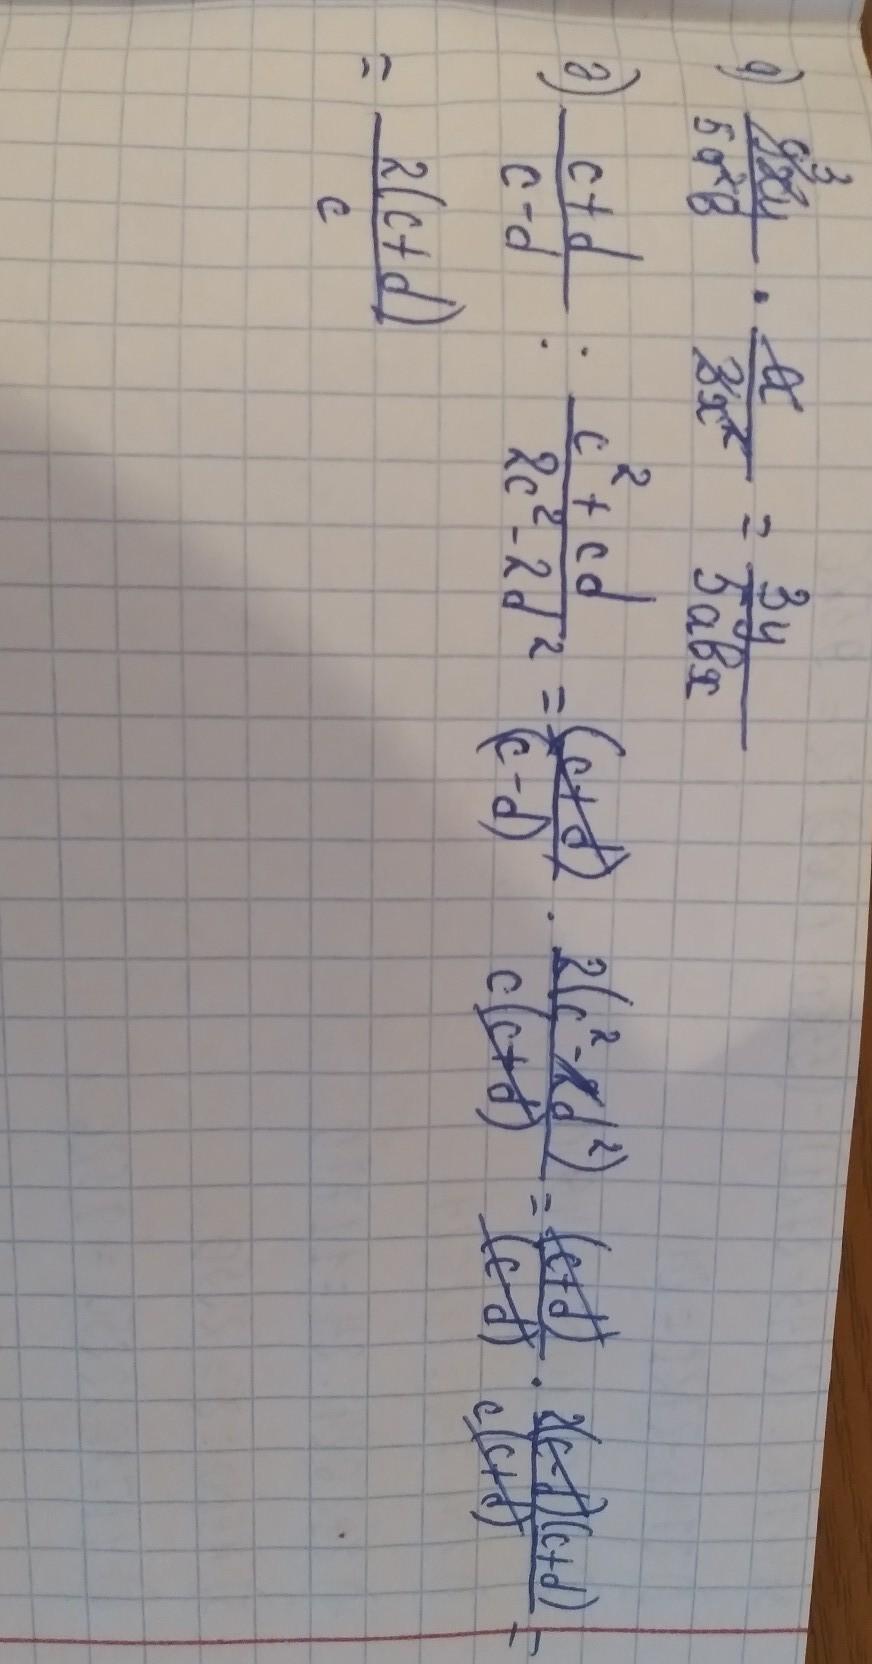 1) 9xy/5a²b · a/3x² = 3y/5abx
2) c+d/c-d : c²+cd/2c²-2d² = (c+d)/(c-d) · 2(c²-d²)/c(c+d) = (c+d)/(c-d) · 2(c-d)(c+d)/c(c+d) =
= 2(c+d)/c